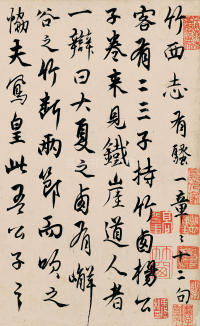 竹西志有騷一章十二句
客有二三子持竹西楊公
子卷來見鐵崖道人者
一辯曰大夏之西有嶰
谷之竹斬兩節而吹之
恊夫鳳皇此吾公子之